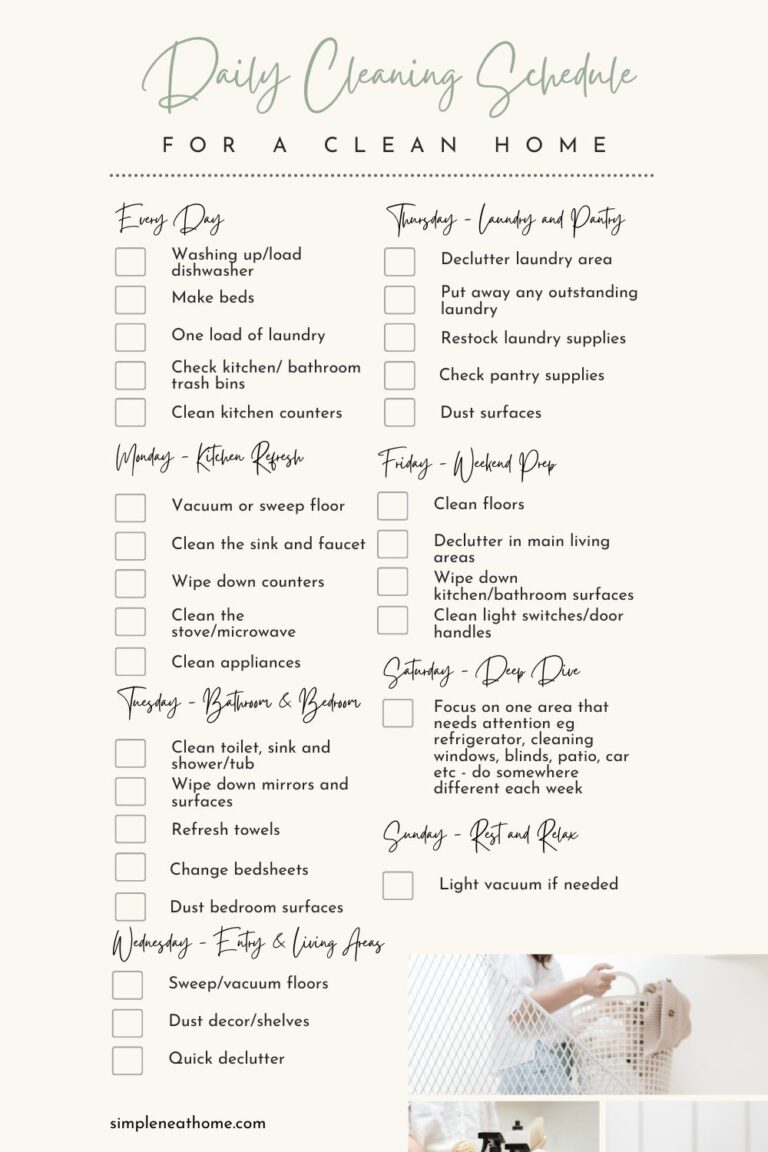 Daily Cleaning Schedule
FOR A CLEAN HOME
Every Day
Washing up/load
dishwasher
Make beds
One load of laundry
Check kitchen/ bathroom
trash bins
Clean kitchen counters
Monday - Kitchen Refresh
Vacuum or sweep floor
Clean the sink and faucet
Wipe down counters
Clean the
stove/microwave
Clean appliances
Tuesday - Bathroom & Bedroom
Clean toilet, sink and
shower/tub
Wipe down mirrors and
surfaces
Refresh towels
Change bedsheets
Dust bedroom surfaces
Wednesday - Entry & Living Areas
Sweep/vacuum floors
Dust decor/shelves
Quick declutter
Thursday - Laundry and Pantry
Declutter laundry area
Put away any outstanding
laundry
Restock laundry supplies
Check pantry supplies
Dust surfaces
Friday - Weekend Prep
Clean floors
Declutter in main living
areas
Wipe down
kitchen/bathroom surfaces
Clean light switches/door
handles
Saturday - Deep Dive
Focus on one area that
needs attention eg
refrigerator, cleaning
windows, blinds, patio, car
etc - do somewhere
different each week
Sunday - Rest and Relax
Light vacuum if needed
simpleneathome.com